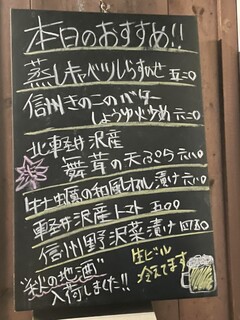 本日のおすすめ!!
蒸しキャベツしらすのせ 五二〇
信州きのこのバター
しょうゆ炒め 六二〇
北軽井沢産
舞茸の天ぷら 六八〇
牛すじ
の和風
漬け 六八〇
軽井沢産トマト 五〇〇
信州野沢菜漬け 四八〇
"秋の地酒"
入荷しました!!
生ビール
冷えてます